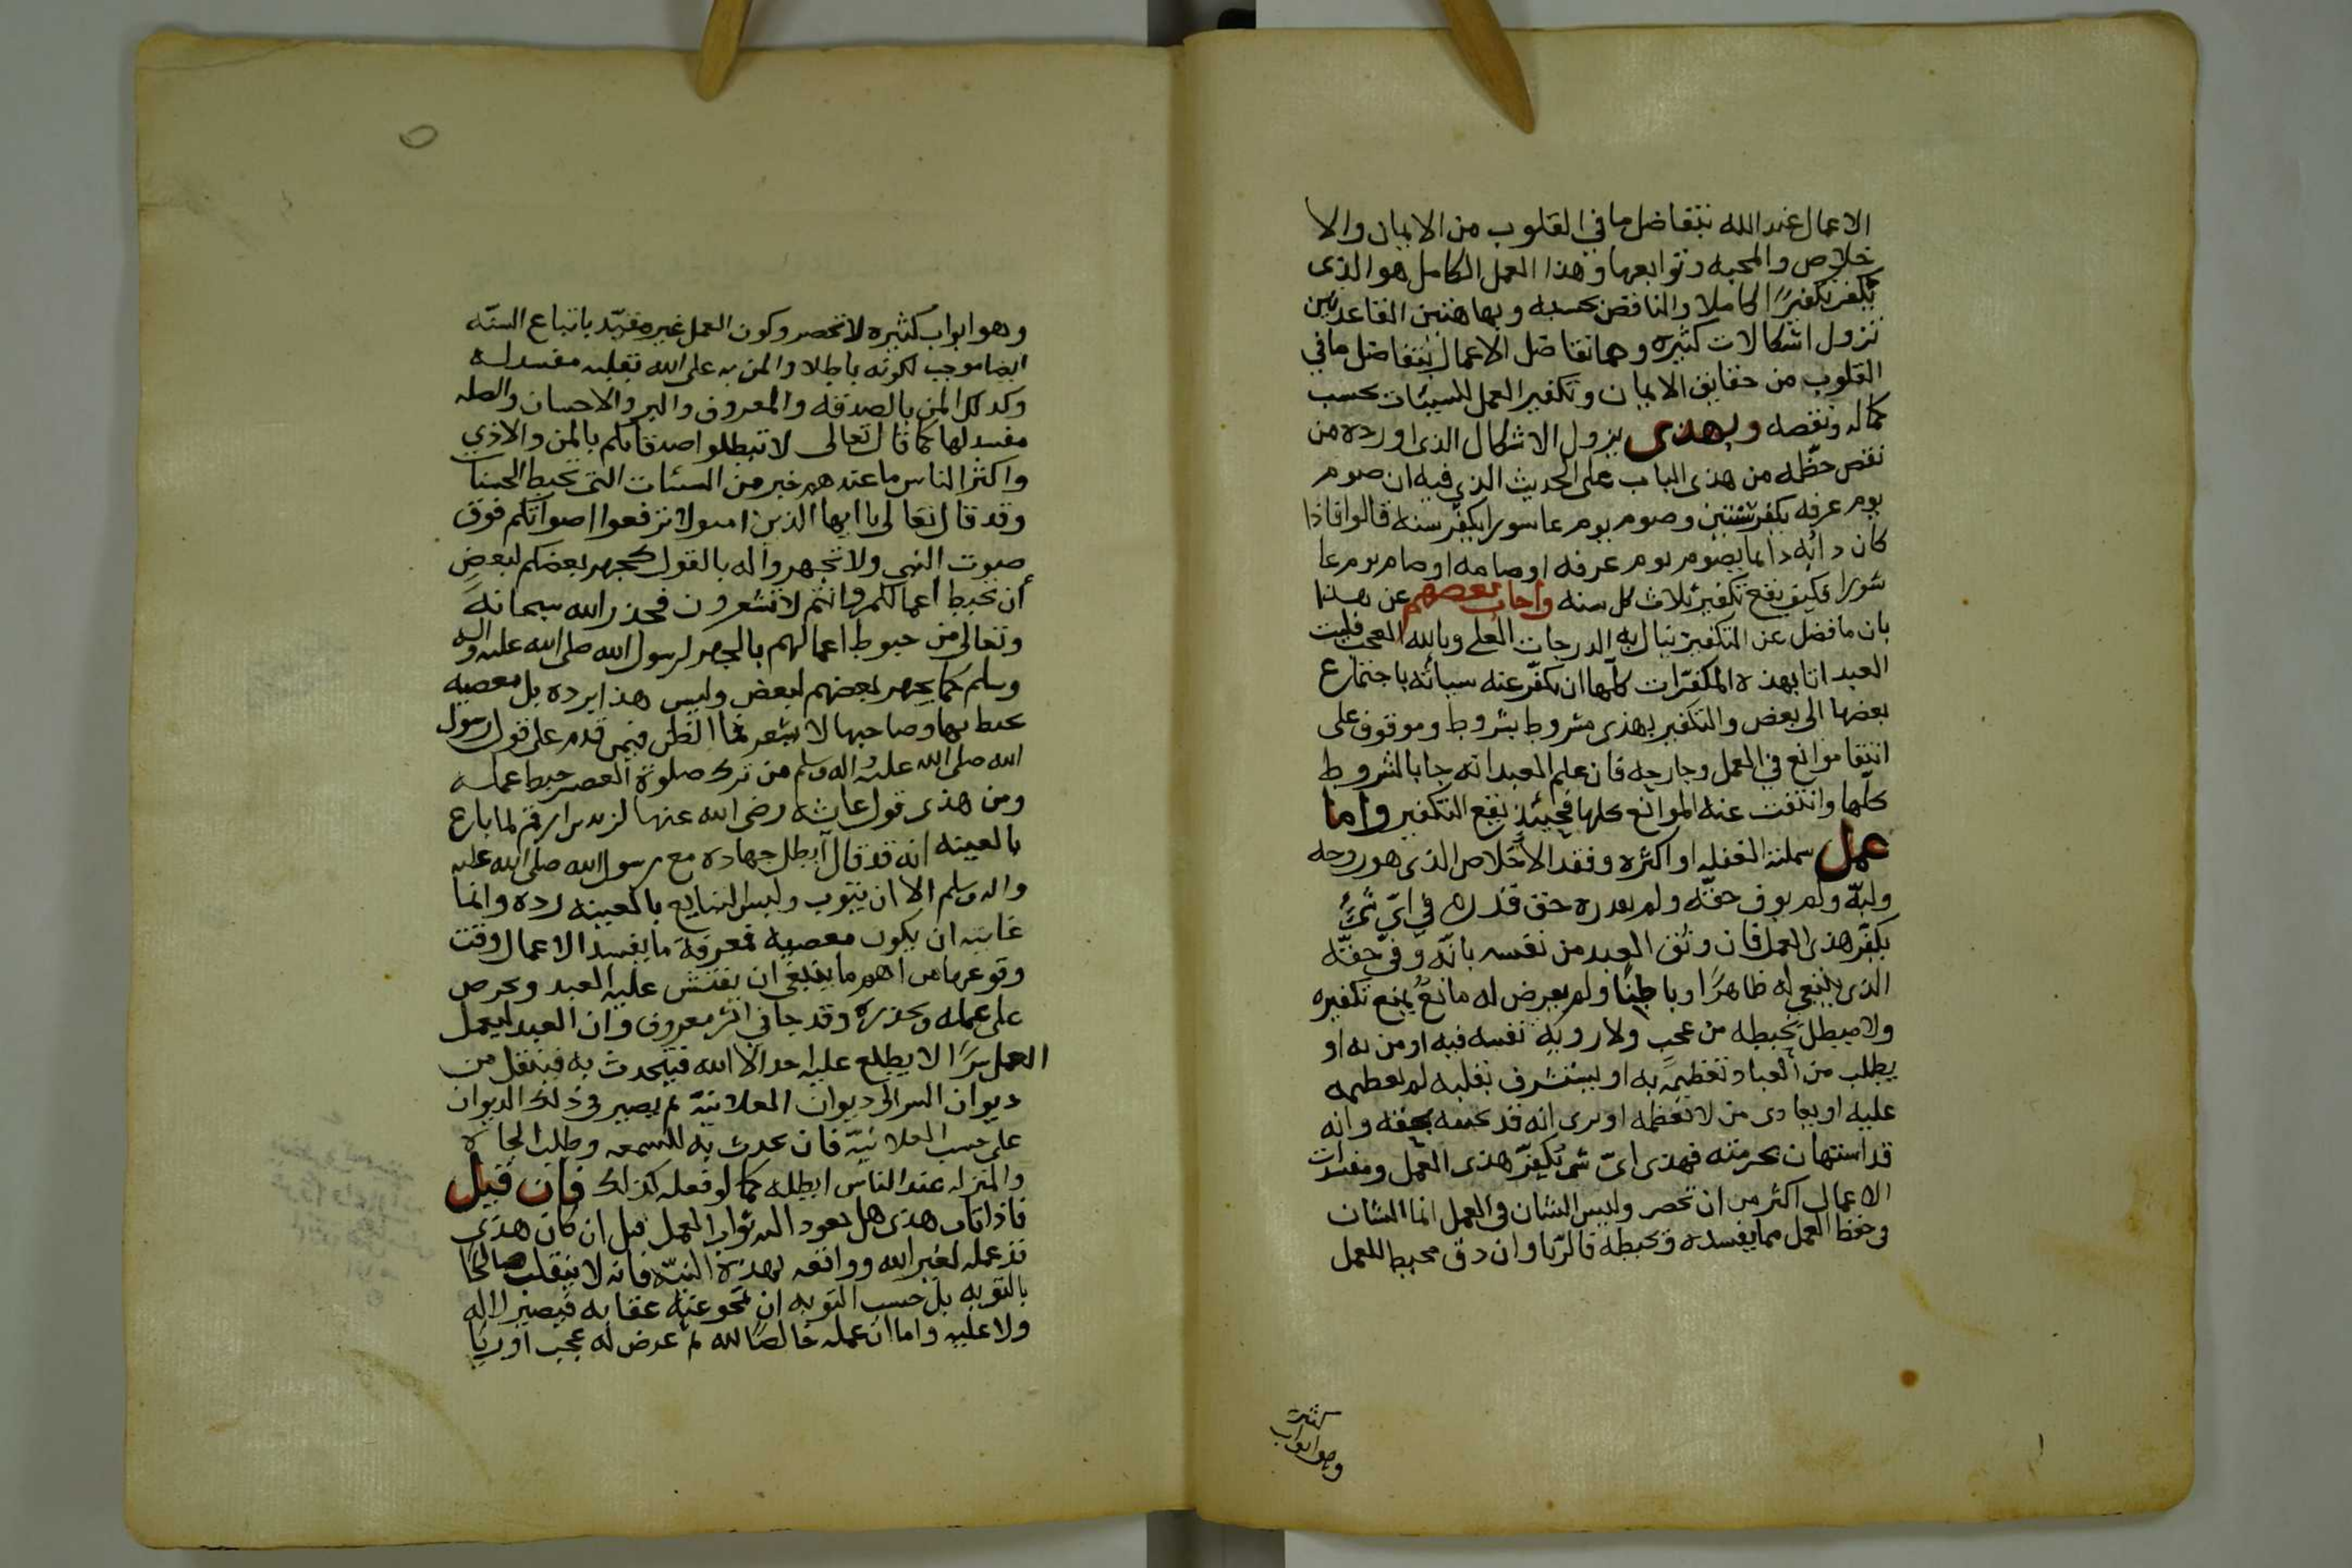 الاعمال عند الله بتفاضل ما في القلوب من الايمان والا
خلاص والمحبه وتوابعها وهذا العمل الكامل هو الذى
يكفر تكفيرًا كاملا والناقص بحسبه وبها هتين القاعدتين
تزول اشكالات كثيره وهما تفاضل الاعمال بتفاضل ما في
القلوب من حقايق الايمان وتكفير العمل للسيئات بحسب
كماله ونقصه وبهذى يزول الاشكال الذى اورده من
نقص حظّه من هذى الباب على الحديث الذي فيه ان صوم
يوم عرفه يكفر سنتين وصوم يوم عاسورا يكفر سنه قالوا فاذا
كان دائه دايما يصوم يوم عرفه او صامه او صام يوم عا
شورا فكيف يقع تكفير ثلاث كل سنه واجاب بعضهم عن هذا
بان ما فضل عن التكفير ينال به الدرجات العلى وبالله العجب فليت
العبد اتا بهذه المكفرات كلّها ان يكفّر عنه سيأته باجتماع
بعضها الى بعض والتكفير بهذى مشروط بشروط وموقوف على
انتفا موانع في العمل وخارجه فان علم العبد انه جا بالشروط
كلّها وانتفت عنه الموانع كلها فحينئذ يقع التكفير واما
عمل سملته الغفله او اكثره وفقد الاخلاص الذى هو روحه
ولبّه ولم يوف حقّه ولم يقدره حق قدره في ايّ شئ
يكفّر هذى العمل فان وثق العبد من نفسه بانّه وفى حقّه
الذى ينبغي له ظاهرًا وباطنًا ولم يعرض له مانعٌ يمنع تكفيره
ولا مبطل يحبطه من عجب ولا روية نفسه فيه او من به او
يطلب من العباد تعظيمه به او يستشرف بقلبه لم يعظمه
عليه او يعادى من لا يعظمه او يرى انه قد بحقه وانه
قد استهان بحرمته فهذى ايّ شئ يكفّر هذى العمل ومفسدات
الاعمال اكثر من ان تحصر وليس الشان في العمل انما الشان
في حفظ العمل مما يفسده ويحبطه فالرّيا وان دق محبط للعمل
وهو ابواب
كثيرة
وهو ابواب كثيره لا تحصر وكون العمل غير مقيّد باتباع السنّه
ايضا موجب لكونه باطلا والمن به على الله بقلبه مفسد له
وكذلك المن بالصدقه والمعروف والبر والاحسان والصله
مفسد لها كما قال تعالى لا تبطلوا صدقاتكم بالمن والاذى
واكثر الناس ما عندهم خبر من السئات التى تحبط الحسنات
وقد قال تعالى يا ايها الذين امنوا لا ترفعوا اصواتكم فوق
صوت النبي ولا تجهروا له بالقول كجهر بعضكم لبعضٍ
أن تحبط أعمالكم وانتم لا تشعرون فحذر الله سبحانه
وتعالى من حبوط اعمالهم بالجهر لرسول الله صلى الله عليه واله
وسلم كما يجهر بعضهم لبعض وليس هذا برده بل معصيه
يحبط بها وصاحبها لا يشعر فما الظن فيمن قدم على قول رسول
الله صلى الله عليه واله وسلم من ترك صلوة العصر حبط عمله
ومن هذى قول عايشه رضى الله عنها لزيد بن ارقم لما بايع
بالعينه انه قد قال أبطل جهاده مع رسول الله صلى الله عليه
واله وسلم الا ان يتوب وليس التبايع بالعينه رده وانما
غايته ان يكون معصيه فمعرفة ما يفسد الاعمال وقت
وقوعها من اهم ما ينبغي ان يفتش عليه العبد ويحرص
على عمله ويحذره وقد جا في اثر معروف وان العبد ليعمل
العمل سرًا لا يطلع عليه احد الا الله فيتحدث به فينتقل من
ديوان السر الى ديوان العلانيّه ثم يصير في ذلك الديوان
على حسب العلانيّه فان يحدث به للسمعه وطلب الجاه
والمنزله عند الناس ابطله كما لو فعله كذلك فان قيل
فاذا تاب هذى هل يعود اليه ثواب العمل قيل ان كان هذى
قد عمله لغير الله وواقعه بهذه النيّه فانه لا ينقلب صالحًا
بالتوبه بل حسب التوبه ان تمحو عنه عقابه فيصير لا له
ولا عليه واما ان عمله خالصًا لله ثم عرض له عجب او ريا